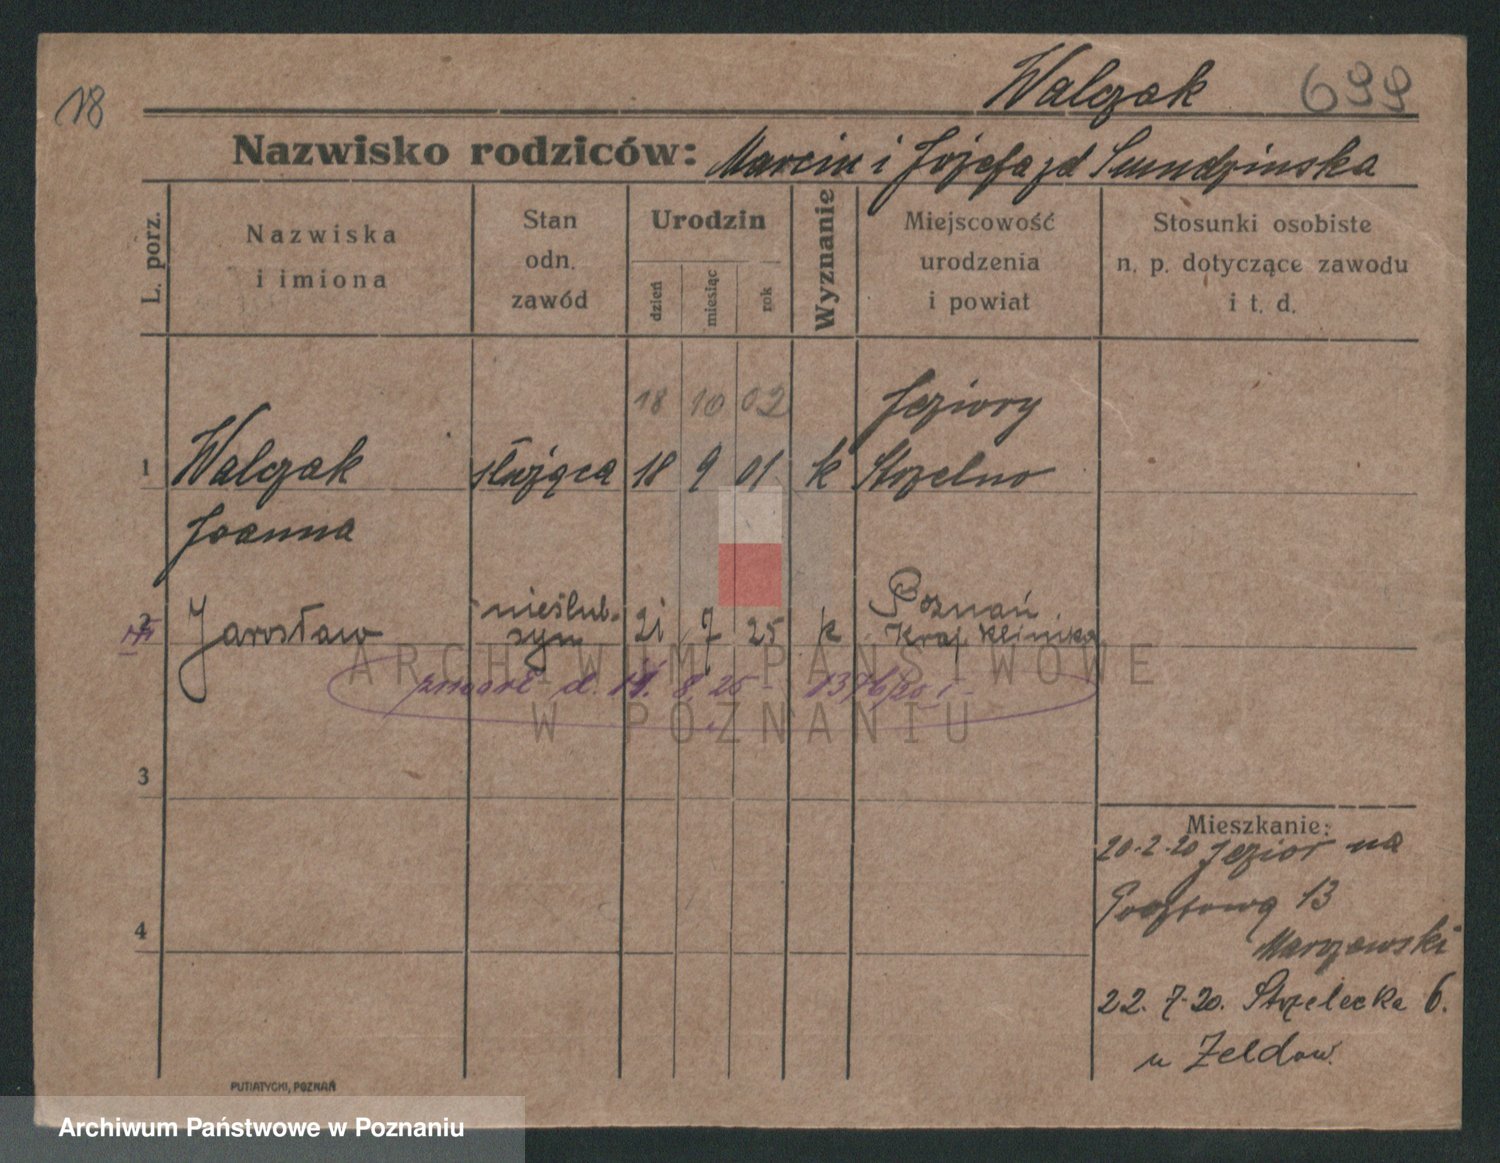 18
Walczak 699
Nazwisko rodziców: Marcin i Józefa zd
L. porz.
Nazwiska
i imiona
Stan
odn.
zawód
Urodzin
dzień
miesiąc
rok
Wyznanie
Miejscowość
urodzenia
i powiat
Stosunki osobiste
n. p. dotyczące zawodu
i t. d.
18 10 02 Jeziory
1 Walczak służąca 18 9 01 k Strzelno
Joanna
nieślub. Poznań
2 Jarosław syn 21 7 25 k Kraj. Klinika
zmarł d. 14. 8. 25 -
3
4
Mieszkanie:
20-2-20 Jezior na
Pocztową 13
22. 7-20. Strzelecka 6.
u Zeldow.
PUTIATYCKI, POZNAŃ
ARCHIWUM PAŃSTWOWE
W POZNANIU
Archiwum Państwowe w Poznaniu